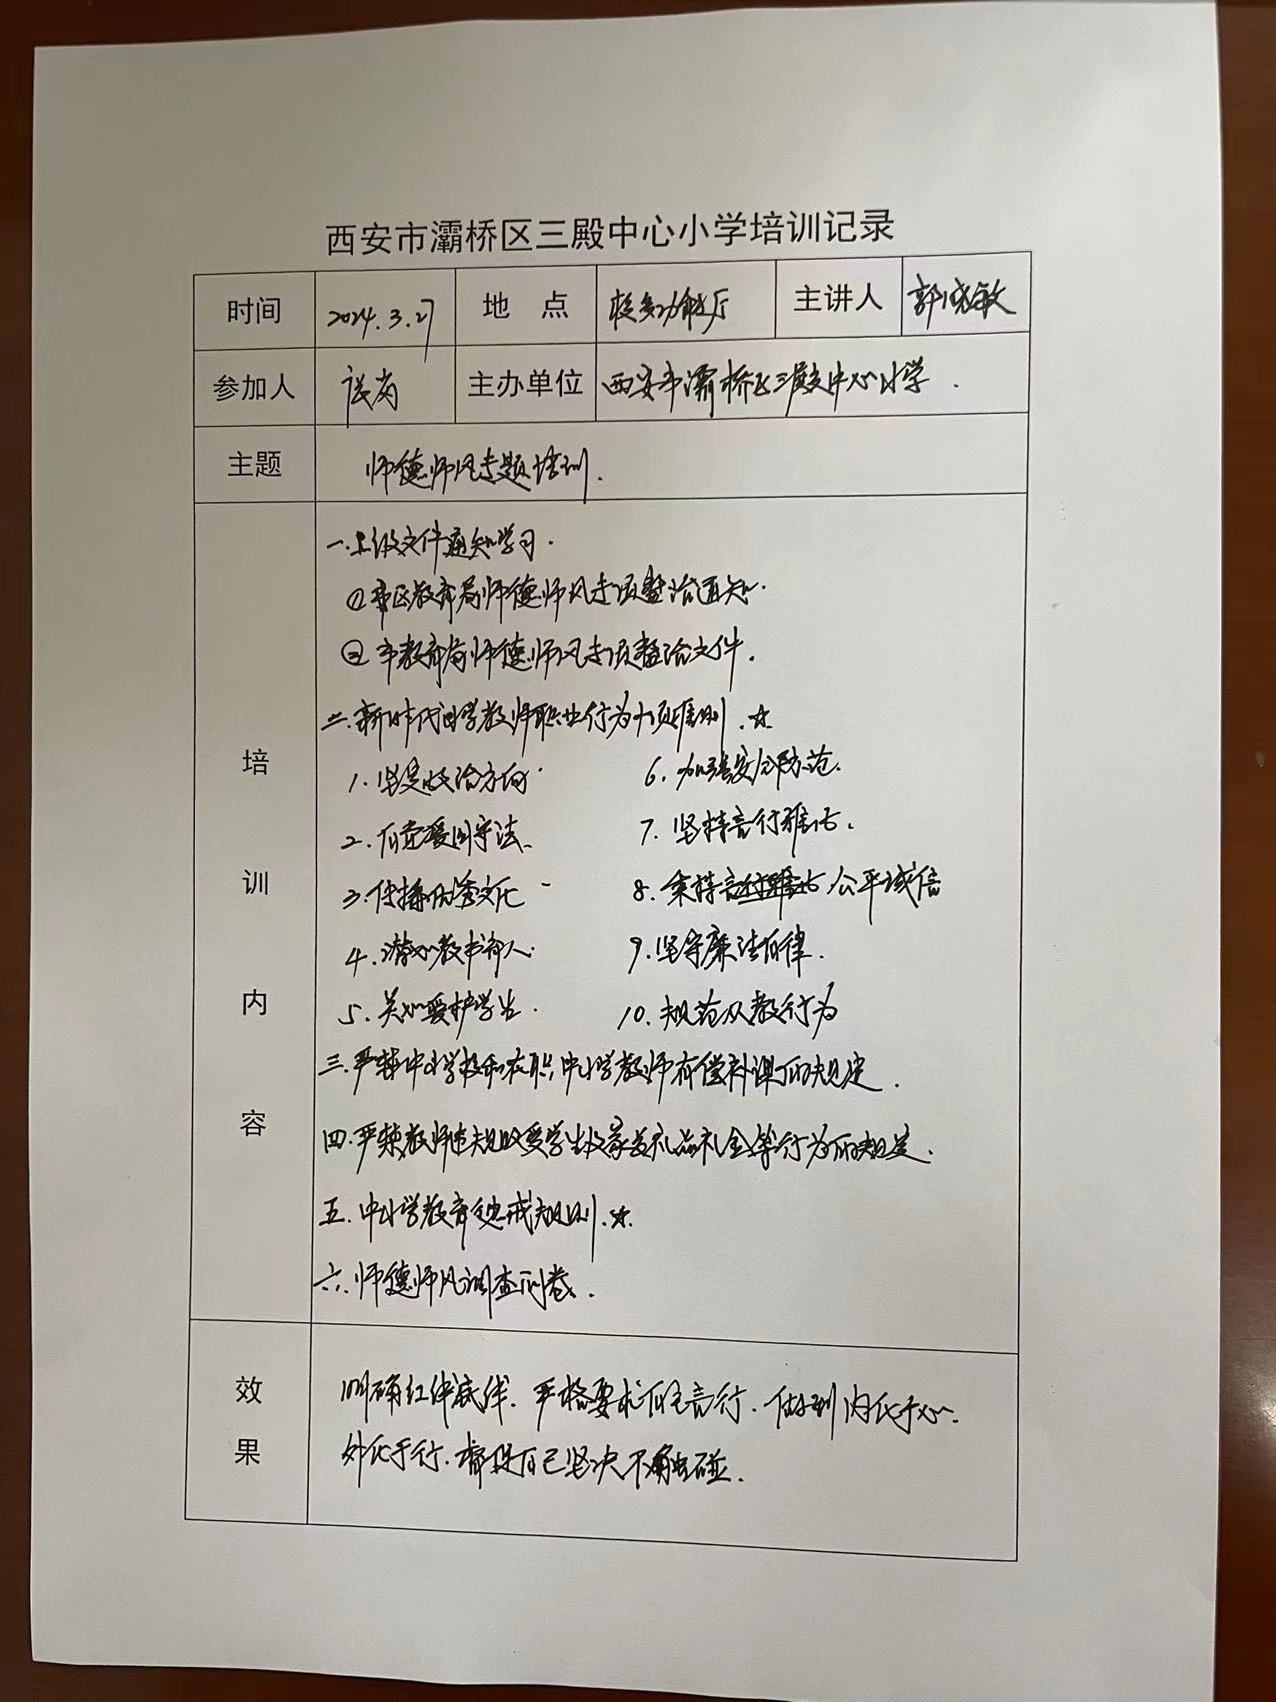 西安市灞桥区三殿中心小学培训记录
时间 2024.3.27 地 点 校多功能厅 主讲人 郭晓敏
参加人 主办单位 西安市灞桥区三殿中心小学.
主题 师德师风专题培训.
培训内容
一.上级文件通知学习.
①市区教育局师德师风专项整治通知.
②市教育局师德师风专项整治文件.
二.新时代中小学教师职业行为十项准则.☆
1.坚定政治方向. 6.加强安全防范.
2.自觉爱国守法. 7.坚持言行雅洁.
3.传播优秀文化 8.秉持公平诚信
4.潜心教书育人. 9.坚守廉洁自律.
5.关心爱护学生. 10.规范从教行为
三.严禁中小学校和在职中小学教师有偿补课的规定.
四.严禁教师违规收受学生及家长礼品礼金等行为的规定.
五.中小学教育惩戒规则.☆.
六.师德师风调查问卷.
效果
明确红线底线.严格要求自己言行.做到内化于心.
外化于行.督促自己坚决不触碰.